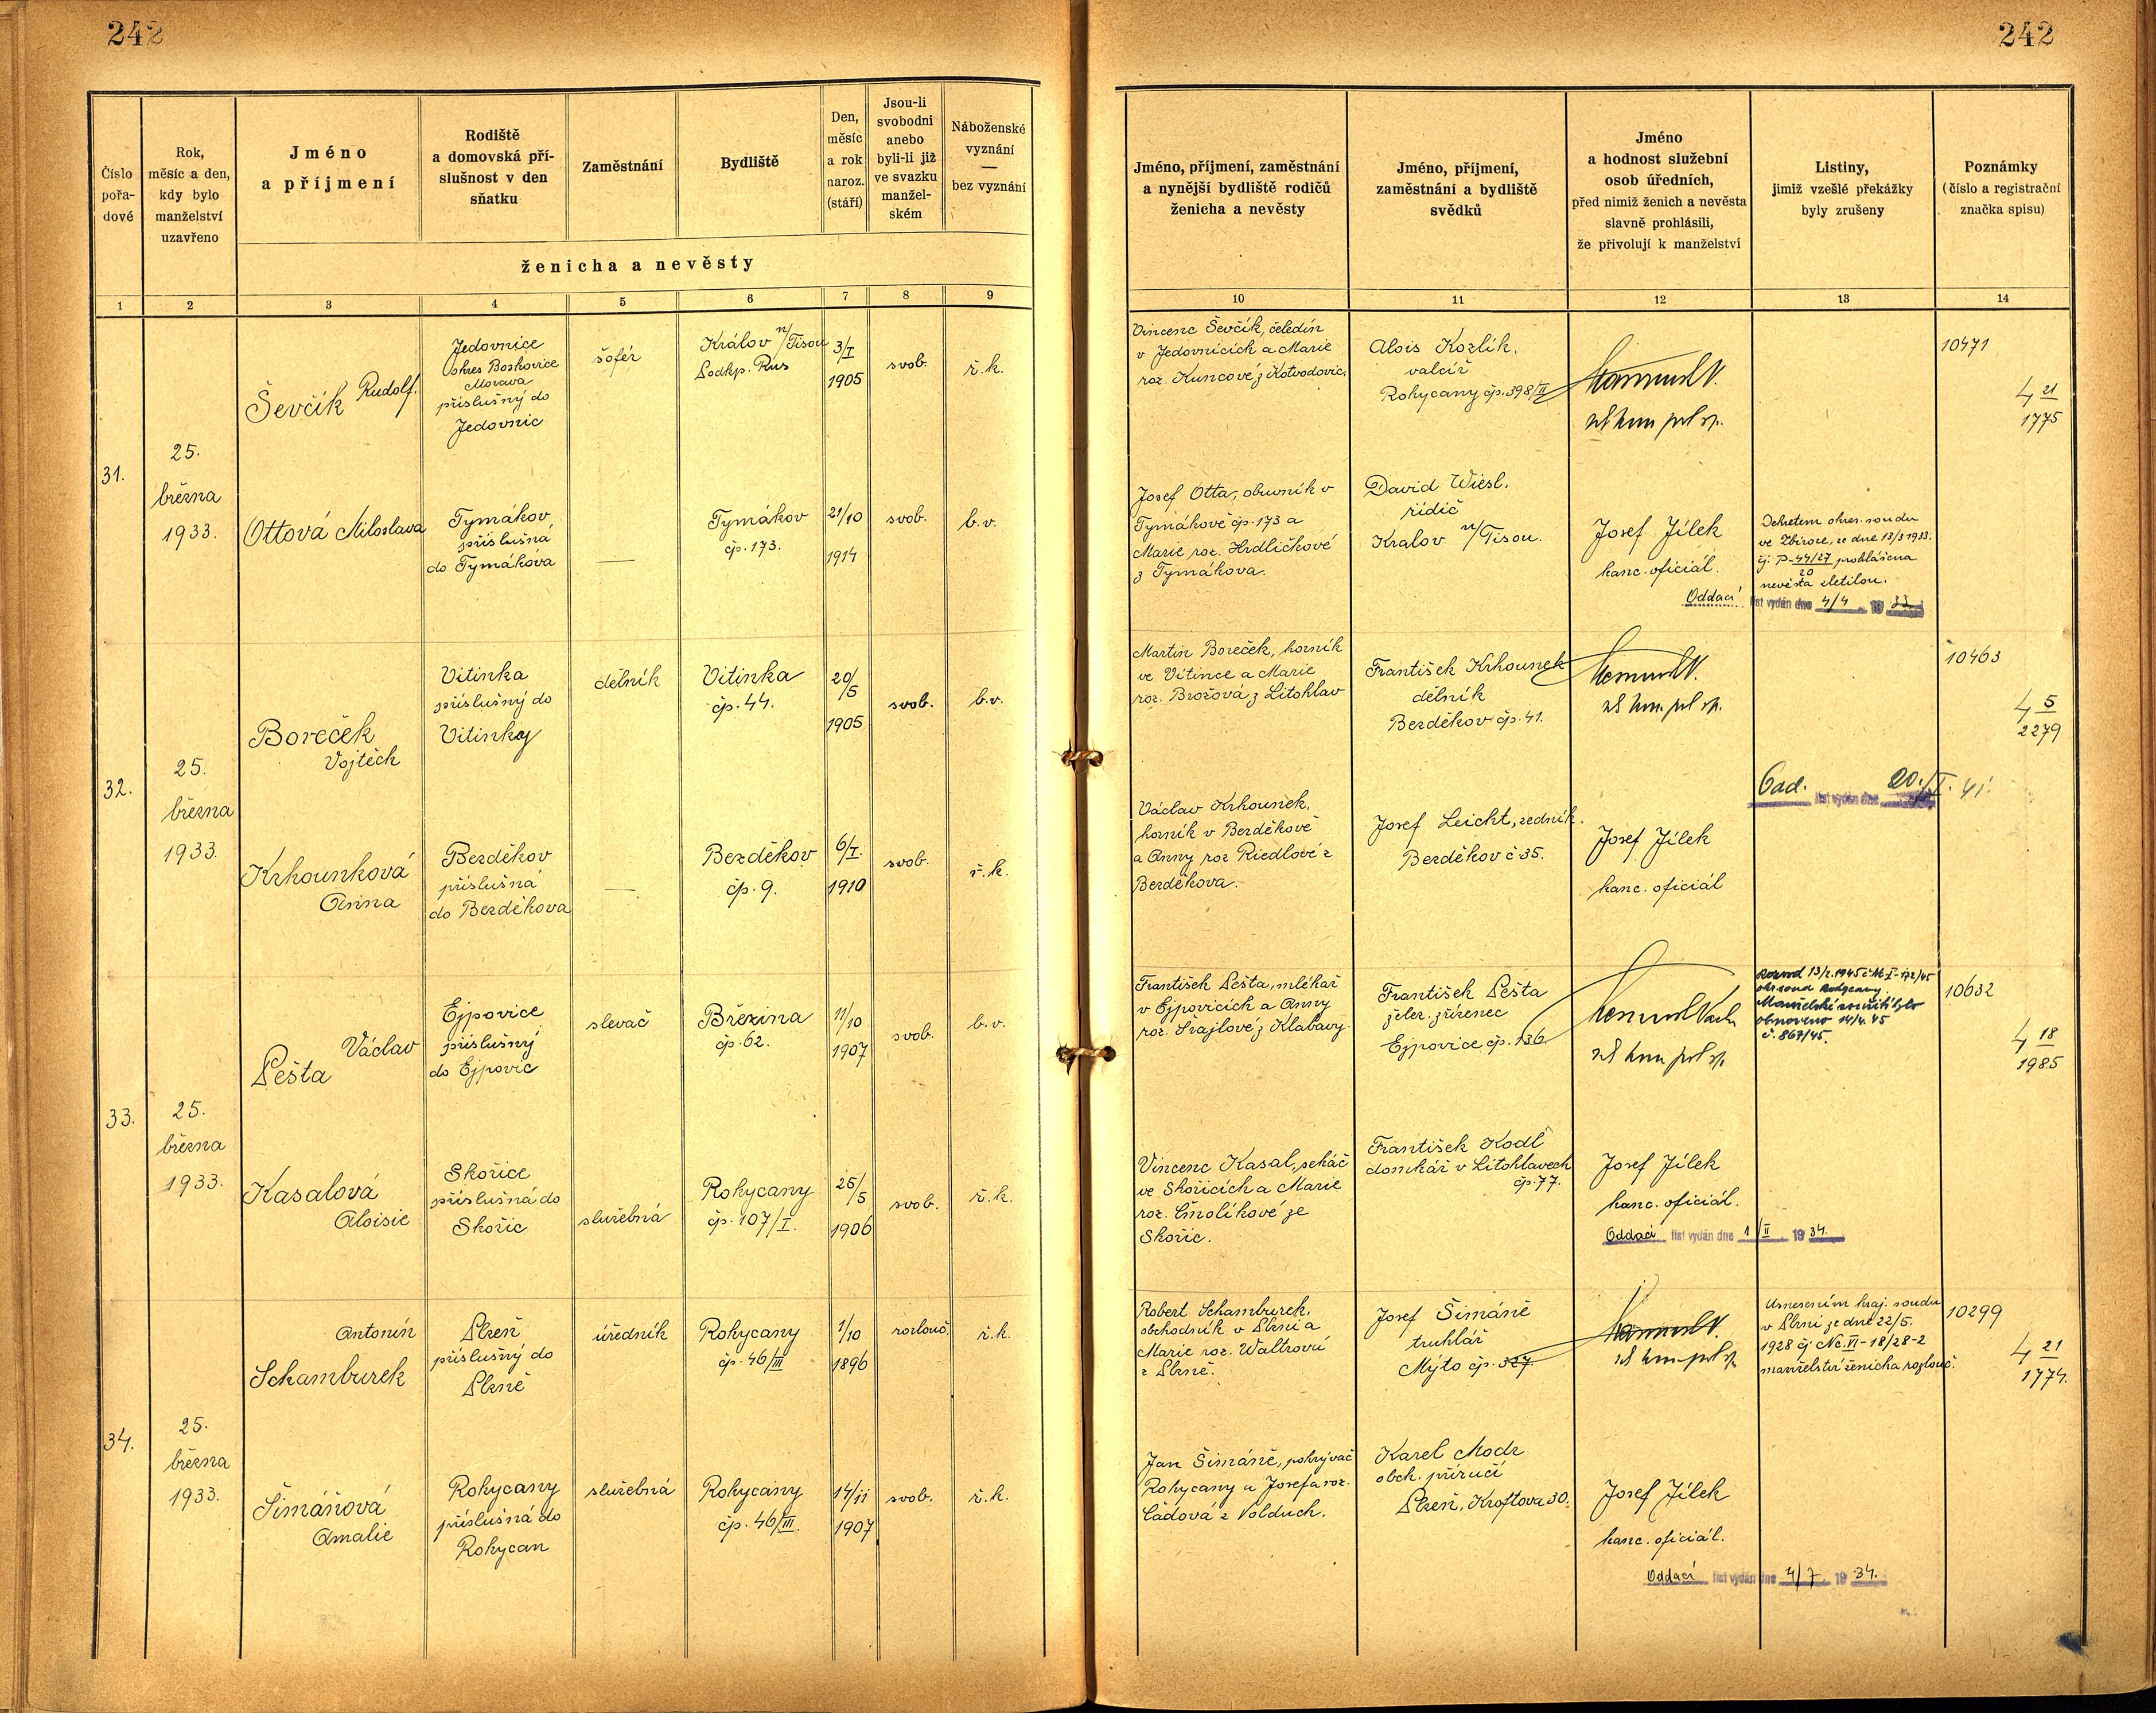 242
242
Číslo
pořa-
dové
Rok,
měsíc a den,
kdy bylo
manželství
uzavřeno
Jméno
a příjmení
Rodiště
a domovská pří-
slušnost v den
sňatku
Zaměstnání
Bydliště
Den,
měsíc
a rok
naroz.
(stáří)
Jsou-li
svobodni
anebo
byli-li již
ve svazku
manžel-
ském
Náboženské
vyznání
—
bez vyznání
ženicha a nevěsty
Jméno, příjmení, zaměstnání
a nynější bydliště rodičů
ženicha a nevěsty
Jméno, příjmení,
zaměstnání a bydliště
svědků
Jméno
a hodnost služební
osob úředních,
před nimiž ženich a nevěsta
slavně prohlásili,
že přivolují k manželství
Listiny,
jimiž vzešlé překážky
byly zrušeny
Poznámky
(číslo a registrační
značka spisu)
1 2 3 4 5 6 7 8 9
10 11 12 13 14
31.
25.
března
1933.
Ševčík Rudolf.
Jedovnice
okres Boskovice
Morava
příslušný do
Jedovnic
šofér
Králov n/Tisou
Podkp. Rus
3/I
1905
svob.
ř.k.
Vincenc Ševčík, čeledín
v Jedovnicích a Marie
roz. Kuncové z Kotvodovic.
Alois Kozlík,
valcíř
Rokycany čp. 398/II
10471
4 21
1775
Ottová Miloslava
Tymákov
příslušná
do Tymákova
—
Tymákov
čp. 173.
21/10
1914
svob.
b.v.
Josef Otta, obuvník v
Tymákově čp. 173 a
Marie roz. Hrdličkové
z Tymákova.
David Wiesl.
řidič
Kralov n/Tisou.
Josef Jílek
kanc. oficiál.
Dekretem okres. soudu
ve Zbiroze, ze dne 13/3 1933.
čj. P-44/27 prohlášena
20
nevěsta zletilou.
Oddací list vydán dne 4/4 1933
32.
25.
března
1933.
Boreček
Vojtěch
Vitinka
příslušný do
Vitinky
dělník
Vitinka
čp. 44.
20/5
1905
svob.
b.v.
Martin Boreček, horník
ve Vitince a Marie
roz. Brožová z Litohlav
František Krhounek
dělník
Bezděkov čp. 41.
10463
4 5
2279
Odd. list vydán dne 20./I. 41.
Krhounková
Anna
Bezděkov
příslušná
do Bezděkova
—
Bezděkov
čp. 9.
6/I.
1910
svob.
ř.k.
Václav Krhounek,
horník v Bezděkově
a Anny roz Riedlové z
Bezděkova.
Josef Leicht, zedník.
Bezděkov č 35.
Josef Jílek
kanc. oficiál
33.
25.
března
1933.
Václav
Pešta
Ejpovice
příslušný
do Ejpovic
slevač
Březina
čp. 62.
11/10
1907
svob.
b.v.
František Pešta, mlékař
v Ejpovicích a Anny
roz. Šrajlové z Klabavy.
František Pešta
želez. zřízenec
Ejpovice čp. 136
Rozvod 13/2. 1945 č Nc I-172/45
okr. soud Rokycany.
Manželské soužití bylo
obnoveno 14/4. 45
č. 867/45.
10632
4 18
1985
Kasalová
Aloisie
Skořice
příslušná do
Skořic
služebná
Rokycany
čp. 107/I.
25/5
1906
svob.
ř.k.
Vincenc Kasal, sekáč
ve Skořicích a Marie
roz. Smolíkové ze
Skořic.
František Kodl
domkář v Litohlavech
čp. 77.
Josef Jílek
kanc. oficiál.
Oddací list vydán dne 1/II 1934.
34.
25.
března
1933.
Antonín
Schamburek
Plzeň
příslušný do
Plzně
úředník
Rokycany
čp. 46/III
1/10
1896
rozlouč.
ř.k.
Robert Schamburek,
obchodník v Plzni a
Marie roz. Waltrová
z Plzně.
Josef Šimáně
truhlář
Mýto čp. 327.
Usnesením kraj. soudu
v Plzni ze dne 22/5.
1928 čj. Nc. VI-18/28-2
manželství ženicha rozlouč.
10299
4 21
1774.
Šimáňová
Amalie
Rokycany
příslušná do
Rokycan
služebná
Rokycany
čp. 46/III.
14/11
1907
svob.
ř.k.
Jan Šimáně, pokrývač
Rokycany a Josefa roz.
Čadová z Volduch.
Karel Modr
obch. příručí
Plzeň, Kroftova 30.
Josef Jílek
kanc. oficiál.
Oddací list vydán dne 4/7 1934.